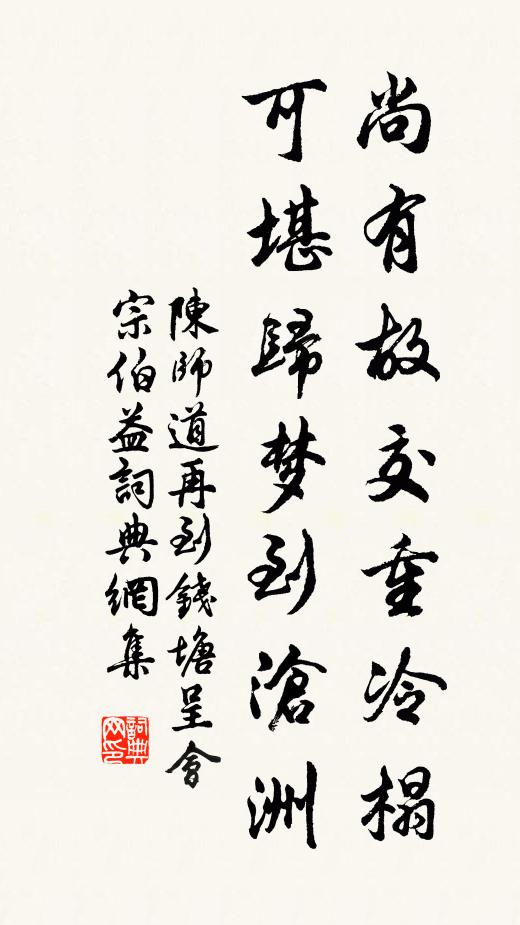 尚有故交重冷榻
可堪歸梦到滄洲
陳師道再到錢塘呈會
宗伯益詞典網集
詞典网印